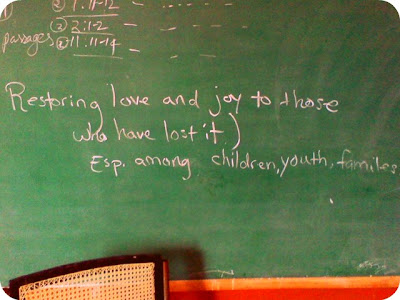 ② 7:11-12 -
② 2:1-2 -
passages ④ 11:11-14 -
Restoring love and joy to those
who have lost it)
Esp. among children, youth, families